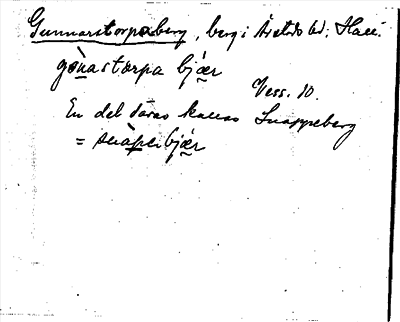 Gunnarstorpaberg, berg i Årstads hd; Hall.
gònastɔrpa bjær
Vess. 10.
En del därav kallas Snappeberg
= snàpebjær